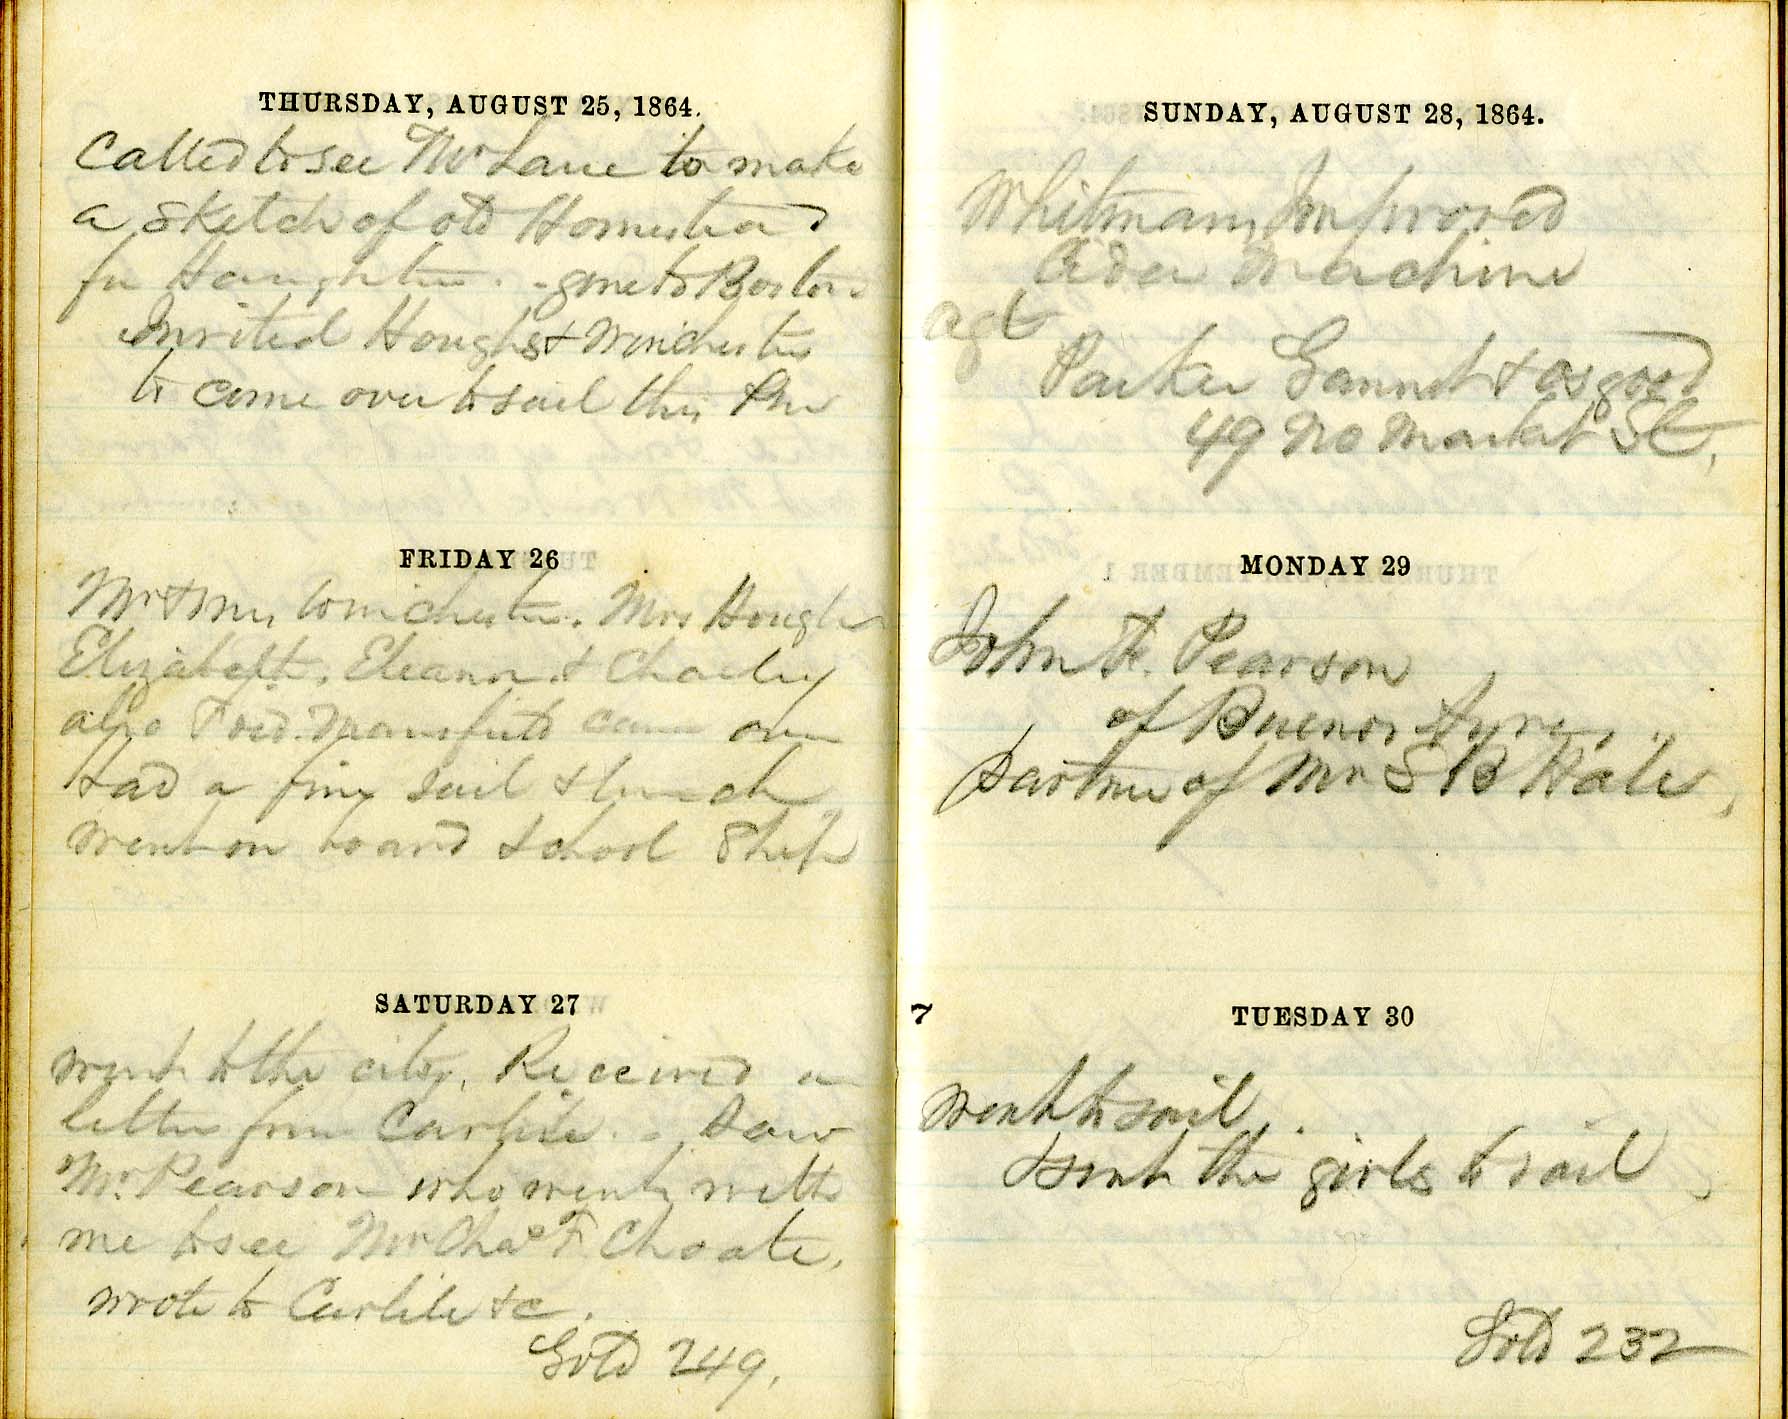 THURSDAY, AUGUST 25, 1864.
Called to see Mr Lane to make
a sketch of old Homestead
for Haughton. - gone to Boston.
Invited Houghs & Winchesters
to come over to sail this
FRIDAY 26
Mr & Mrs Winchester. Mrs Hough
Elizabeth, Eleanor & Charley
also Fred. Mansfield came over
Had a fine sail & lunch
went on board School Ship
SATURDAY 27
went to the city. Received a
letter from Carlisle. - Saw
Mr. Pearson who went with
me to see Mr Chas F. Choate,
wrote to Carlile &c.
Gold 249.
SUNDAY, AUGUST 28, 1864.
Whitmans Improved
Cider Machine
agt
Parker Gannet & Osgood
49 No Market St.
MONDAY 29
John H. Pearson
of Buenos Ayres,
partner of Mr S B Hale,
7
TUESDAY 30
went to sail.
sent the girls to sail
Gold 232